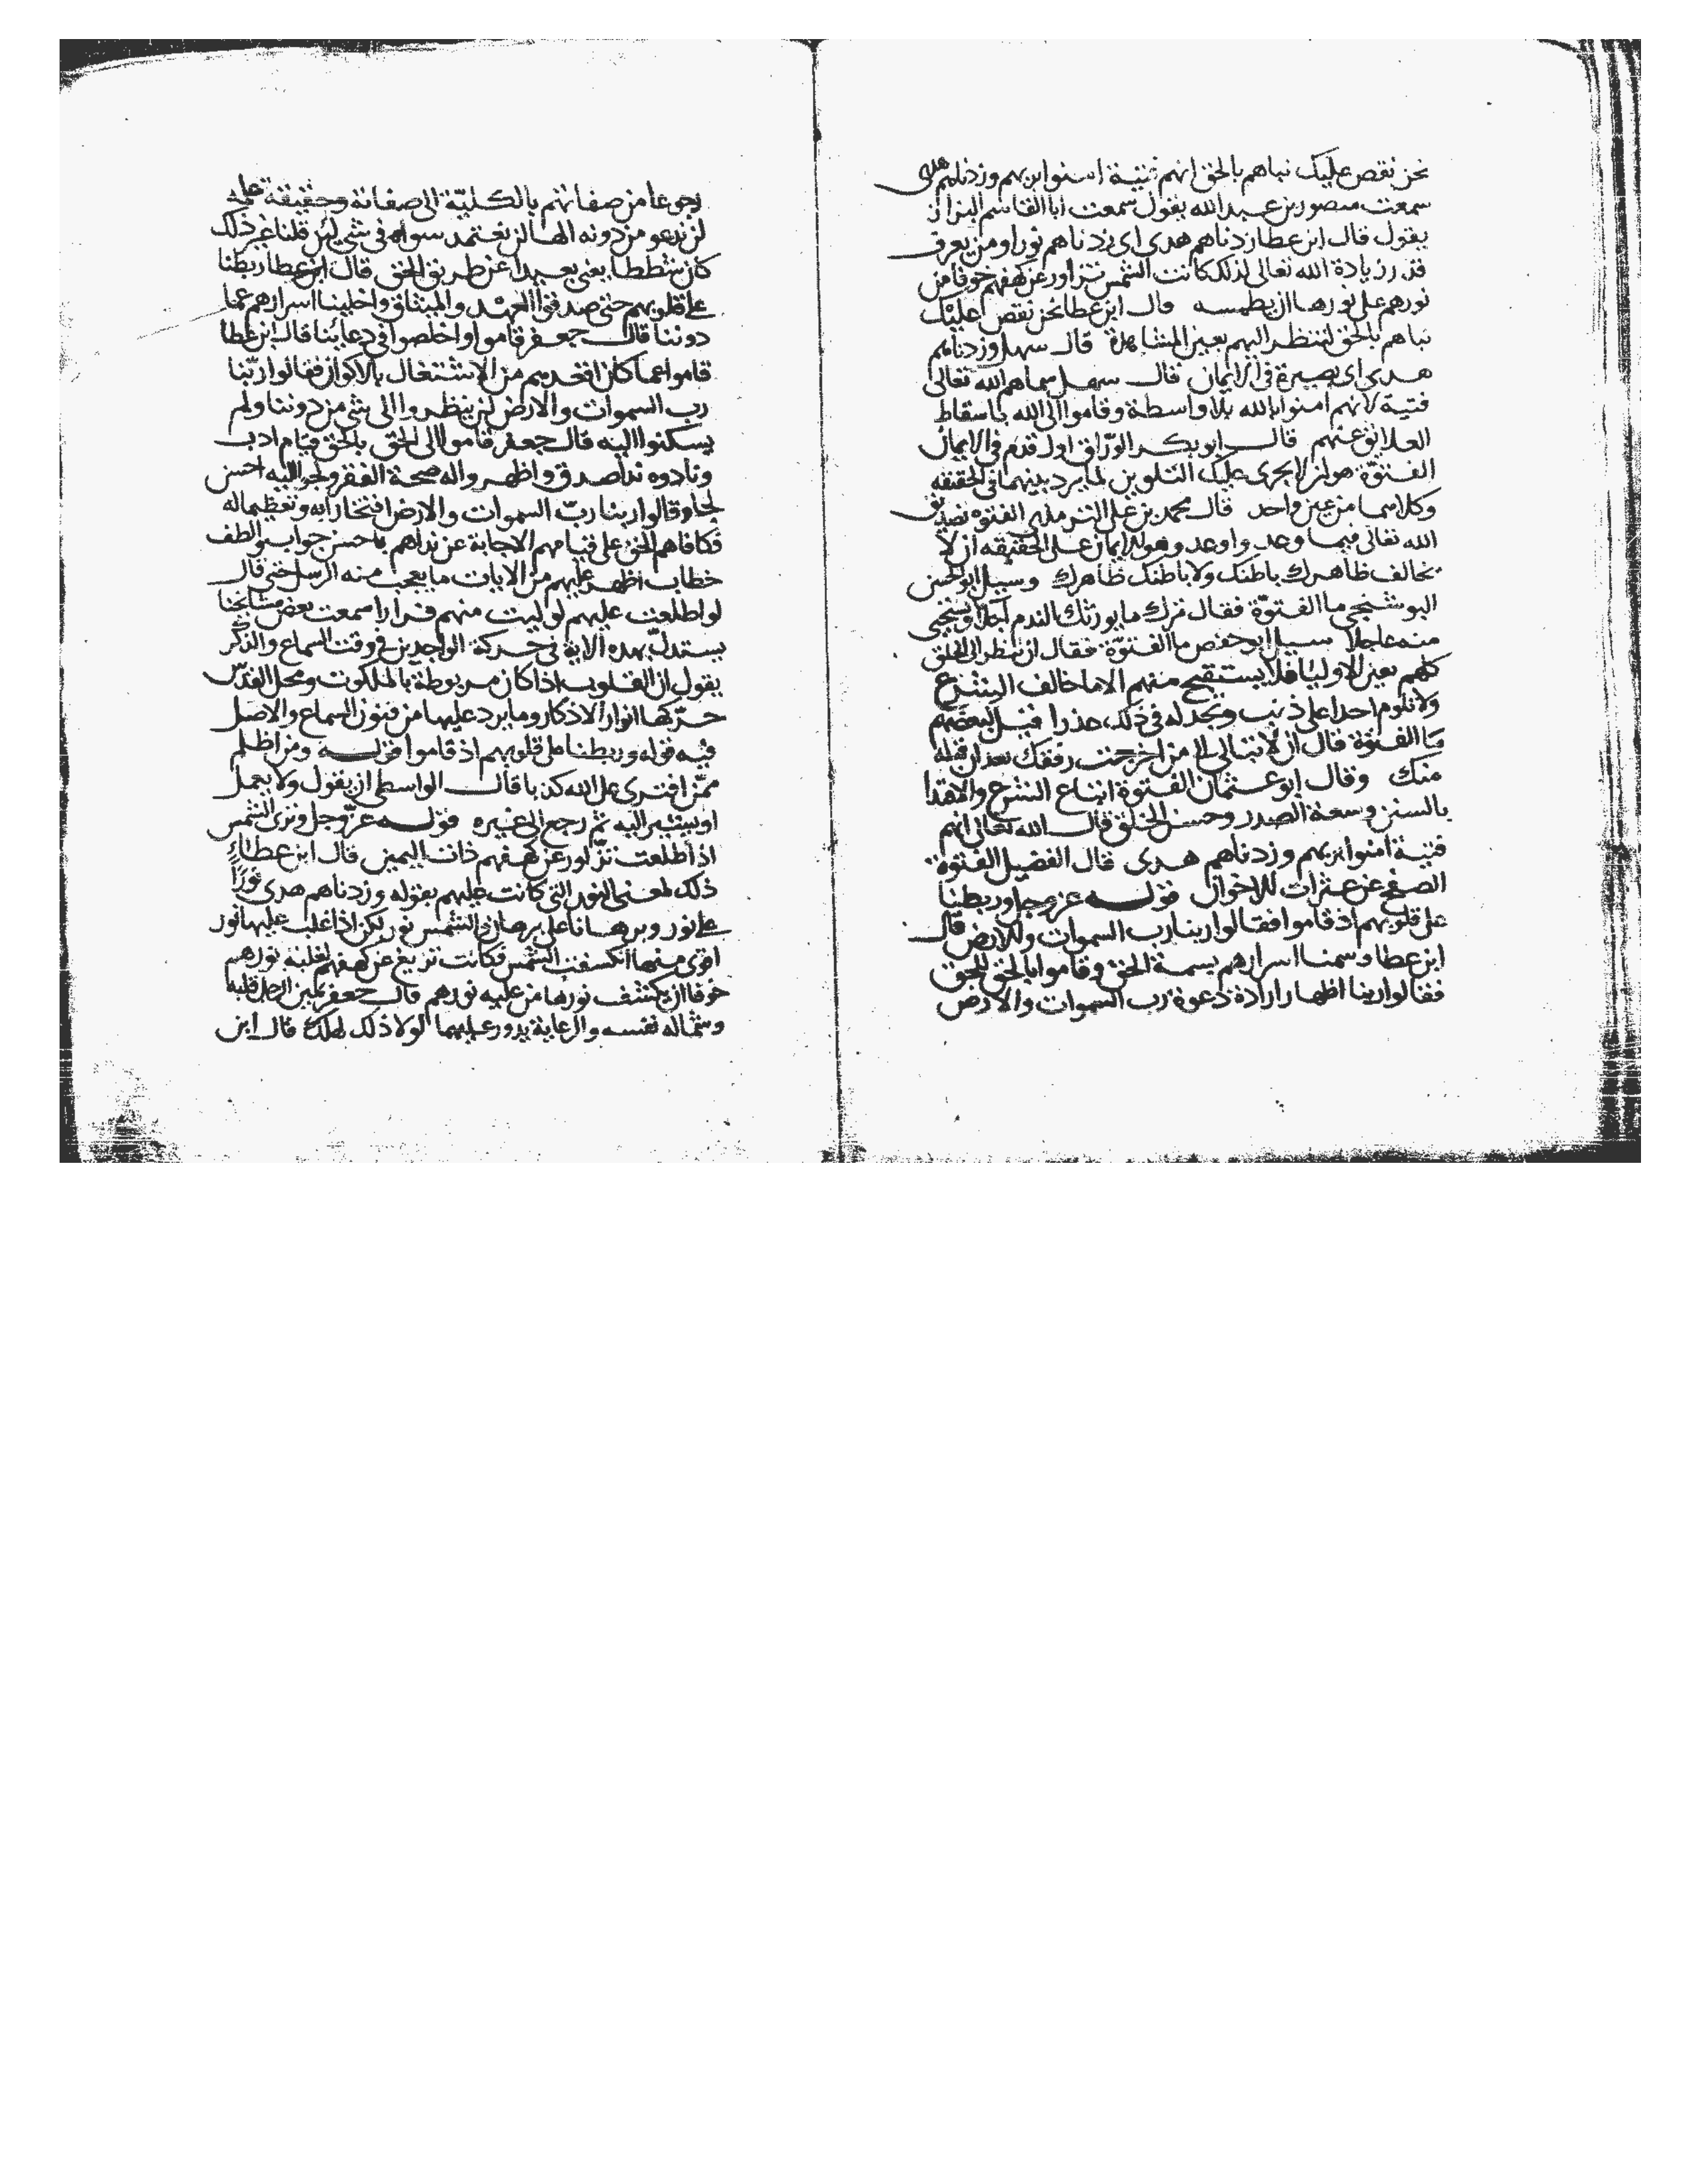 نحن نقص عليك نباهم بالحق انهم فتية امنوا بربهم وزدناهم هدى
سمعت منصور بن عبد الله يقول سمعت ابا القاسم البزاز
يقول قال ابن عطا زدناهم هدى اى زدناهم نورا ومن يعرف
قدر زيادة الله تعالى لذلك كانت الشمس تزاور عن كهفهم خوفا من
نورهم على نورها ان يطمسه قال ابن عطا نحن نقص عليك
نباهم بالحق لتنظر اليهم بعين المشاهدة قال سهل وزدناهم
هدى اى بصيرة فى الايمان قال سهل سماهم الله تعالى
فتية لانهم امنوا بالله بلا واسطة وقاموا الى الله باسقاط
العلايق عنهم قال ابو بكر الورّاق اول قدم فى الايمان
الفتوّة هو ان لا يجرى عليك التلوين لما يرد بينهما فى الحقيقه
وكلاهما من عين واحد قال محمد بن على الترمذى الفتوه تصديق
الله تعالى فيما وعد واوعد وهو الايمان على الحقيقه ان لا
يخالف ظاهرك باطنك ولا باطنك ظاهرك وسيل ابو الحسن
البوشنجى ما الفتوّة فقال ترك ما يورثك الندم اجلا ويستحيى
منه عاجلا سيل ابو حفص ما الفتوّة فقال ان تنظر الى الخلق
كلهم بعين الاوليا فلا يستقبح منهم الا ما خالف الشرع
ولا تلوم احدا على ذنب وتجد له فى ذلك عذرا قيل لبعضهم
ما الفتوّة قال ان لا تبالى الى من اخرجت رفقك بعد ان قبله
منك وقال ابو عثمان الفتوّة اتباع الشرع والاقتدا
بالسنن وسعة الصدر وحسن الخلق قال الله تعالى انهم
فتية امنوا بربهم وزدناهم هدى قال الفضيل الفتوة
الصفح عن عثرات للاخوان قوله عز وجل وربطنا
على قلوبهم اذ قاموا فقالوا ربنا رب السموات والارض قال
ابن عطا وسمنا اسرارهم بسمة الحق وقاموا بالحق للحق
فقالوا ربنا اظهار ارادة دعوة رب السموات والارض
رجوعا من صفاتهم بالكليّة الى صفاته وحقيقة علمه
لن ندعو من دونه الها لن نعتمد سواه فى شى لئن قلنا غير ذلك
كان شططا يعنى بعيدا عن طريق الحق قال ابن عطا ربطنا
على قلوبهم حتى صدقوا العهد والميثاق واخلينا اسرارهم عما
دوننا قال جعفر قاموا واخلصوا فى دعائنا قال ابن عطا
قاموا عما كان اقعدهم من الاشتغال بالاكوان فقالوا ربّنا
رب السموات والارض لن ينظروا الى شى من دوننا ولم
يسكنوا اليه قال جعفر قاموا الى الحق بالحق قيام ادب
ونادوه ندا صدق واظهروا له صحة الفقر ولجوا اليه احسن
لجا وقالوا ربنا ربّ السموات والارض افتخارا به وتعظيما له
فكافاهم الحق على قيامهم الاجابة عن نداهم باحسن جواب والطف
خطاب اظهر عليهم من الايات ما يعجب منه الرسل حتى قال
لو اطلعت عليهم لوليت منهم فرارا سمعت بعض مشايخنا
يستدلّ بهذه الاية فى حركة الواجدين فى وقت السماع والذكر
يقول ان القلوب اذا كان مربوطة بالملكوت ومحل القدّس
حرّكها انوار الاذكار وما يرد عليها من فنون السماع والاصل
فيه قوله وربطنا على قلوبهم اذ قاموا قوله ومن اظلم
ممّن افترى على الله كذبا قال الواسطى ان يقول ولا يعمل
او يشير اليه ثم رجع الى غيره قوله عزّ وجل وترى الشمس
اذا طلعت تزّاور عن كهفهم ذات اليمين قال ابن عطاء
ذلك لمعنى النور التى كانت عليهم بقوله وزدناهم هدى نورًا
على نور وبرهانا على برهان والشمس نور لكن اذا غلب عليها نور
اقوى منها انكسفت الشمس فكانت تزيغ عن كهفهم لغلبة نورهم
خوفا ان يكشف نورها من غلبه نورهم قال جعفر يمين الرجل قلبه
وشماله نفسه والرعاية يدور عليهما لولا ذلك لهلك قال ابن